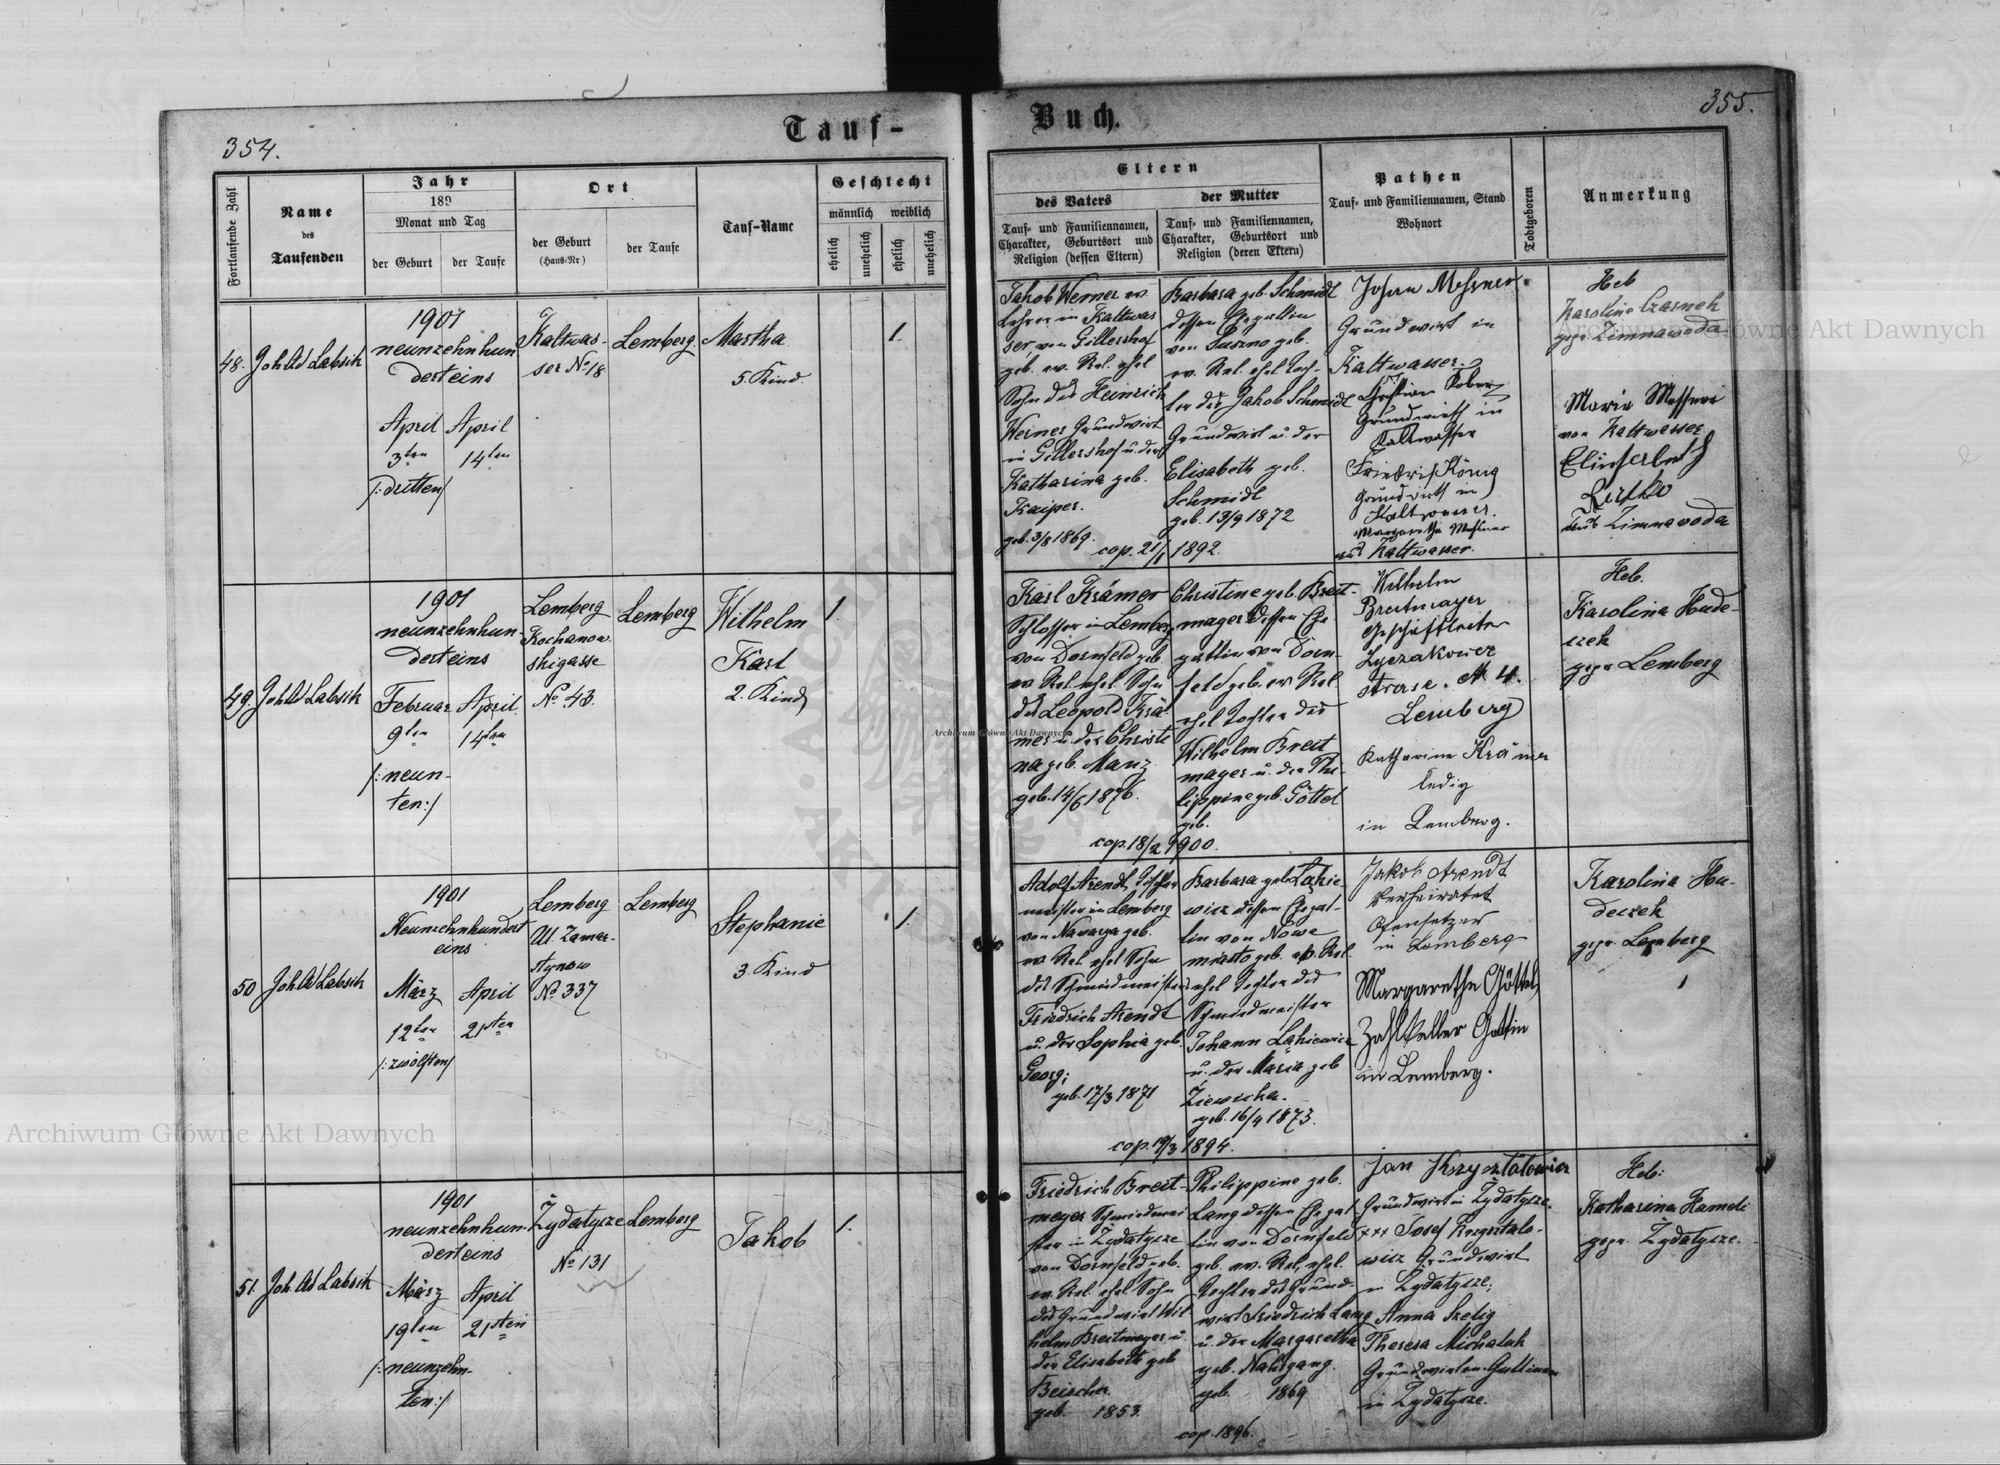 354.
Tauf-
Buch.
355.
Fortlaufende Zahl
Name
des
Taufenden
Jahr
189
Monat und Tag
der Geburt
der Taufe
Ort
der Geburt
(Haus-Nr)
der Taufe
Tauf-Name
Geschlecht
männlich
weiblich
ehelich
unehelich
ehelich
unehelich
Eltern
des Vaters
Tauf- und Familiennamen,
Charakter, Geburtsort und
Religion (dessen Eltern)
der Mutter
Tauf- und Familiennamen,
Charakter, Geburtsort und
Religion (deren Eltern)
Pathen
Tauf- und Familiennamen, Stand
Wohnort
Todtgeboren
Anmerkung
48.
Joh Ad Labsik
1901
neunzehnhun
derteins
April
3ten
/:dritten/
April
14ten
Kaltwas-
ser No 18
Lemberg
Martha
5. Kind
1.
Jakob Werner ev.
Lehrer in Kaltwas
ser, von Gillershof
geb. ev. Rel. ehel
Sohn des Heinrich
Werner Grundwirt
in Gillershof u. der
Katharina geb.
Kaiper.
geb. 3/8 1869.
cop. 21/1 1892.
Barbara geb. Schmidt
dessen Ehegattin
geb.
ev. Rel. ehel. Toch-
ter des Jakob Schmidt
Grundwirt u. der
Elisabeth geb.
Schmidt
geb. 13/9 1872
Johan Messner
Grundwirt in
Kaltwasser.
Christian Kober
Grundwirth in
Kaltwasser
Friedrich König
Grundwirth in
Kaltwasser.
Margaretha Messner
aus Kaltwasser.
Heb
Karoline Czarnek
gepr Zimnawoda
Maria Messner
von Kaltwasser
aus Zimnawoda
49.
Joh Ad Labsik
1901
neunzehnhun-
derteins
Februar
9ten
/:neun-
ten:/
April
14ten
Lemberg
Kochanow
skigasse
No 43.
Lemberg
Wilhelm
Karl
2. Kind
1.
Karl Krämer
Schlosser in Lemberg
von Dornfeld geb
ev. Rel. ehel. Sohn
des Leopold Krä-
mer u. der Christi
na geb. Manz
geb. 14/6 1876.
cop. 18/2 1900.
Christine geb. Breit-
mayer dessen Ehe
gattin von Dorn-
feld geb. ev Rel
ehel Tochter des
Wilhelm Breit
mayer u. der Phi-
lippine geb. Göttel
geb.
Wilhelm
Breitmayer
Geschäftleiter
Lyczakower
strasse. No 4.
Lemberg
Katharina Krämer
ledig
in Lemberg.
Heb.
Karolina Hude-
czek
gepr Lemberg
50
Joh Ad Labsik
1901
Neunzehnhundert
eins
März
12ten
/:zwölften/
April
21sten
Lemberg
Ul. Zamar-
stynow
No 337
Lemberg
Stephanie
3. Kind
1.
Adolf Arendt, Tischler
meister in Lemberg
geb.
ev. Rel. ehel Sohn
des Schmiedmeisters
Friedrich Arendt
u. der Sophia geb.
Georg;
geb. 17/3 1871
cop. 19/3 1894.
Barbara geb. Łąkie
wicz dessen Ehegat-
tin von Nowe
miasto geb. Rel.
ehel Tochter des
Schmiedmeister
Johann Łąkiewicz
u. der Maria geb
geb. 16/4 1873.
Jakob Arendt
verheiratet
Ofensetzer
in Lemberg
Margarethe Göttel
Zahlkellner Gattin
in Lemberg.
Karolina Hu-
deczek
gepr. Lemberg
51.
Joh. Ad Labsik
1901
neunzehnhun-
derteins
März
19ten
/:neunzehn-
ten:/
April
21sten
Żydatycze
No 131
Lemberg
Jakob
1.
Friedrich Breit-
meyer Schmiedmei
ster in Żydatycze
von Dornfeld geb.
ev. Rel. ehel Sohn
des Grundwirt Wil
helm Breitmeyer u.
der Elisabeth geb
Beischer
geb. 1853.
cop. 1896.
Philippine geb.
Lang dessen Ehegat
tin von Dornfeld
geb. ev. Rel. ehel.
Tochter des Grund-
wirt Friedrich Lang
u. der Margaretha
geb. Nahrgang.
geb. 1869
Jan Krzysztalowicz
Grundwirt in Żydatycze.
+++ Josef Krzysztalo-
wicz Grundwirt
in Żydatycze;
Anna Szelig
Theresa Michalak
Grundwirten-Gattinen
in Żydatycze.
Heb:
Katharina Hameli
gepr. Żydatycze.
Archiwum Główne Akt Dawnych
Archiwum Główne Akt Dawnych
Archiwum Główne Akt Dawnych